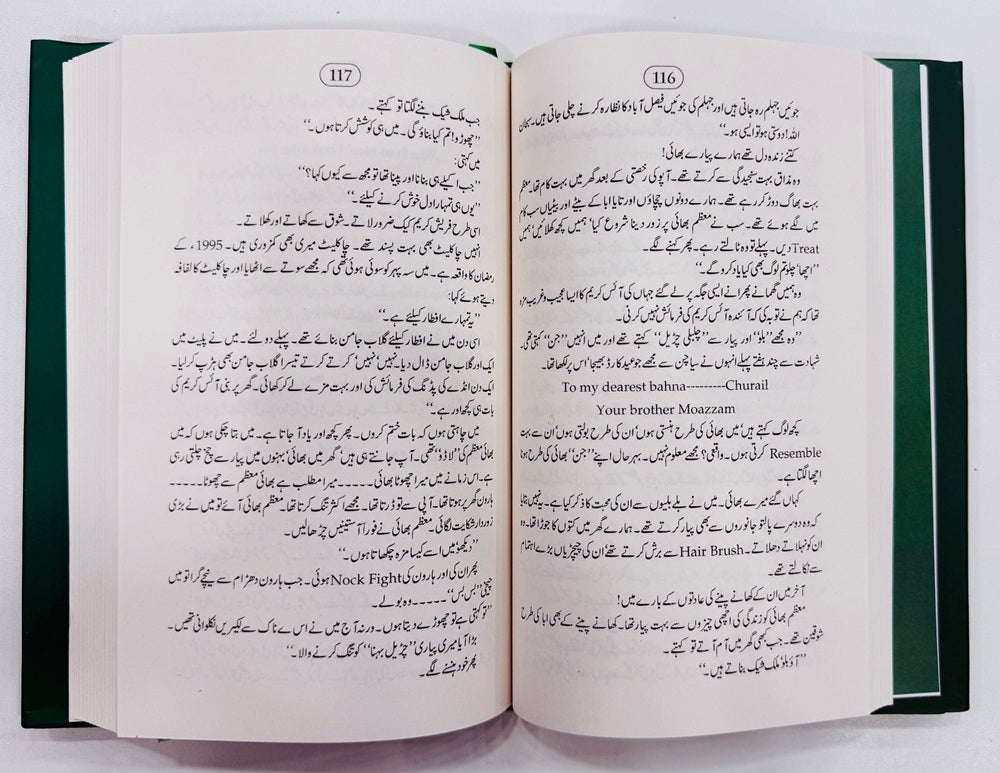 116
جوئیں جہلم رہ جاتی ہیں اور جہلم کی جوئیں فیصل آباد کا نظارہ کرنے چلی جاتی ہیں۔ سبحان
اللہ! دوستی ہو تو ایسی ہو۔‘‘
کتنے زندہ دل تھے ہمارے پیارے بھائی!
وہ مذاق بہت سنجیدگی سے کرتے تھے۔ آپو کی رخصتی کے بعد گھر میں بہت کام تھا۔ معظم
بہت بھاگ دوڑ کر رہے تھے۔ ہمارے دونوں چچاؤں اور تایا ابا کے بیٹے اور بیٹیاں سب کام
میں لگے ہوئے تھے۔ سب نے معظم بھائی پر زور دینا شروع کیا’ ہمیں کچھ کھلائیں‘ ہمیں
Treat دیں۔ پہلے تو وہ ٹالتے رہے۔ پھر کہنے لگے۔
’’اچھا‘ چلو تم لوگ بھی کیا یاد کرو گے۔‘‘
وہ ہمیں گھمانے پھرانے ایسی جگہ پر لے گئے جہاں کی آئس کریم کا ایسا عجیب و غریب مزہ
تھا کہ ہم نے توبہ کی کہ آئندہ آئس کریم کی فرمائش نہیں کرنی۔
’’وہ مجھے ’’بلو‘‘ اور پیار سے ’’چلبلی چڑیل‘‘ کہتے تھے اور میں انہیں ’’جن‘‘ کہتی تھی۔
شہادت سے چند ہفتے پہلے انہوں نے سیاچن سے مجھے جو عید کارڈ بھیجا‘ اس پر لکھا تھا۔
To my dearest bahna---------Churail
Your brother Moazzam
کچھ لوگ کہتے ہیں‘ میں بھائی کی طرح ہنستی ہوں‘ ان کی طرح بولتی ہوں‘ ان سے بہت
Resemble کرتی ہوں۔ واقعی؟ مجھے معلوم نہیں۔ بہرحال اپنے ’’جن‘‘ بھائی کی طرح ہونا
اچھا لگتا ہے۔
کہاں گئے میرے بھائی۔ میں نے بلے بلیوں سے ان کی محبت کا ذکر کیا ہے۔ یہ نہیں بتایا
کہ وہ دوسرے پالتو جانوروں سے بھی پیار کرتے تھے۔ ہمارے گھر میں کتوں کا جوڑا تھا۔ وہ
ان کو نہلاتے دھلاتے۔ Hair Brush سے برش کرتے تھے‘ ان کی چیچڑیاں بڑے اہتمام
سے نکالتے تھے۔
آخر میں ان کے کھانے پینے کی عادتوں کے بارے میں!
معظم بھائی کو زندگی کی اچھی چیزوں سے بہت پیار تھا۔ کھانے پینے کے بھی ابا کی طرح
شوقین تھے۔ جب کبھی گھر میں آم آتے تو کہتے۔
’’آؤ بلو‘ ملک شیک بناتے ہیں۔‘‘
117
جب ملک شیک بننے لگتا تو کہتے۔
’’چھوڑو! تم کیا بناؤ گی۔ میں ہی کوشش کرتا ہوں۔‘‘
میں کہتی:
’’جب اکیلے ہی بنانا اور پینا تھا تو مجھ سے کیوں کہا؟‘‘
’’یوں ہی تمہارا دل خوش کرنے کیلئے۔‘‘
اسی طرح فریش کریم کیک ضرور لاتے۔ شوق سے کھاتے اور کھلاتے۔
انہیں چاکلیٹ بھی بہت پسند تھے۔ چاکلیٹ میری بھی کمزوری ہیں۔ 1995ء کے
رمضان کا واقعہ ہے۔ میں سہ پہر کو سوئی ہوئی تھی کہ مجھے سوتے سے اٹھایا اور چاکلیٹ کا لفافہ
دیتے ہوئے کہا:
’’یہ تمہارے افطار کیلئے ہے۔‘‘
اسی دن میں نے افطار کیلئے گلاب جامن بنائے تھے۔ پہلے دو لئے۔ میں نے پلیٹ میں
ایک اور گلاب جامن ڈال دیا۔ ’نہیں‘ نہیں‘ کرتے کرتے تیسرا گلاب جامن بھی ہڑپ کر لیا۔
ایک دن انڈے کی پڈنگ کی فرمائش کی اور بہت مزے لے کر کھائی۔ گھر پر بنی آئس کریم کی
بات ہی کچھ اور ہے۔‘‘
میں چاہتی ہوں کہ بات ختم کروں۔ پھر کچھ اور یاد آ جاتا ہے۔ میں بتا چکی ہوں کہ میں
بھائی معظم کی ’’لاڈو‘‘ تھی۔ آپ جانتے ہی ہیں‘ گھر میں بھائی‘ بہنوں میں پیار سے چخ چلتی رہتی
ہے۔ اس زمانے میں میرا چھوٹا بھائی..... میرا مطلب ہے بھائی معظم سے چھوٹا.....
ہارون گھر پر ہوتا تھا۔ آپی سے تو ڈرتا تھا۔ مجھے اکثر تنگ کرتا تھا۔ معظم بھائی آئے تو میں نے بڑی
زوردار شکایت لگائی۔ معظم بھائی نے فوراً آستینیں چڑھا لیں۔
’’دیکھو‘ میں اسے کیسا مزہ چکھاتا ہوں۔‘‘
پھر ان کی اور ہارون کی Nock Fight ہوئی۔ جب ہارون دھڑام سے نیچے گرا تو میں
چیخی ’’بس بس‘‘..... وہ بولے۔
’’تو کہتی ہے تو چھوڑے دیتا ہوں۔ ورنہ آج میں نے اس سے ناک سے لکیریں نکلوانی تھیں۔
بڑا آیا میری پیاری ’’چڑیل بہنا‘‘ کو تنگ کرنے والا۔‘‘
پھر خود ہنسنے لگے۔